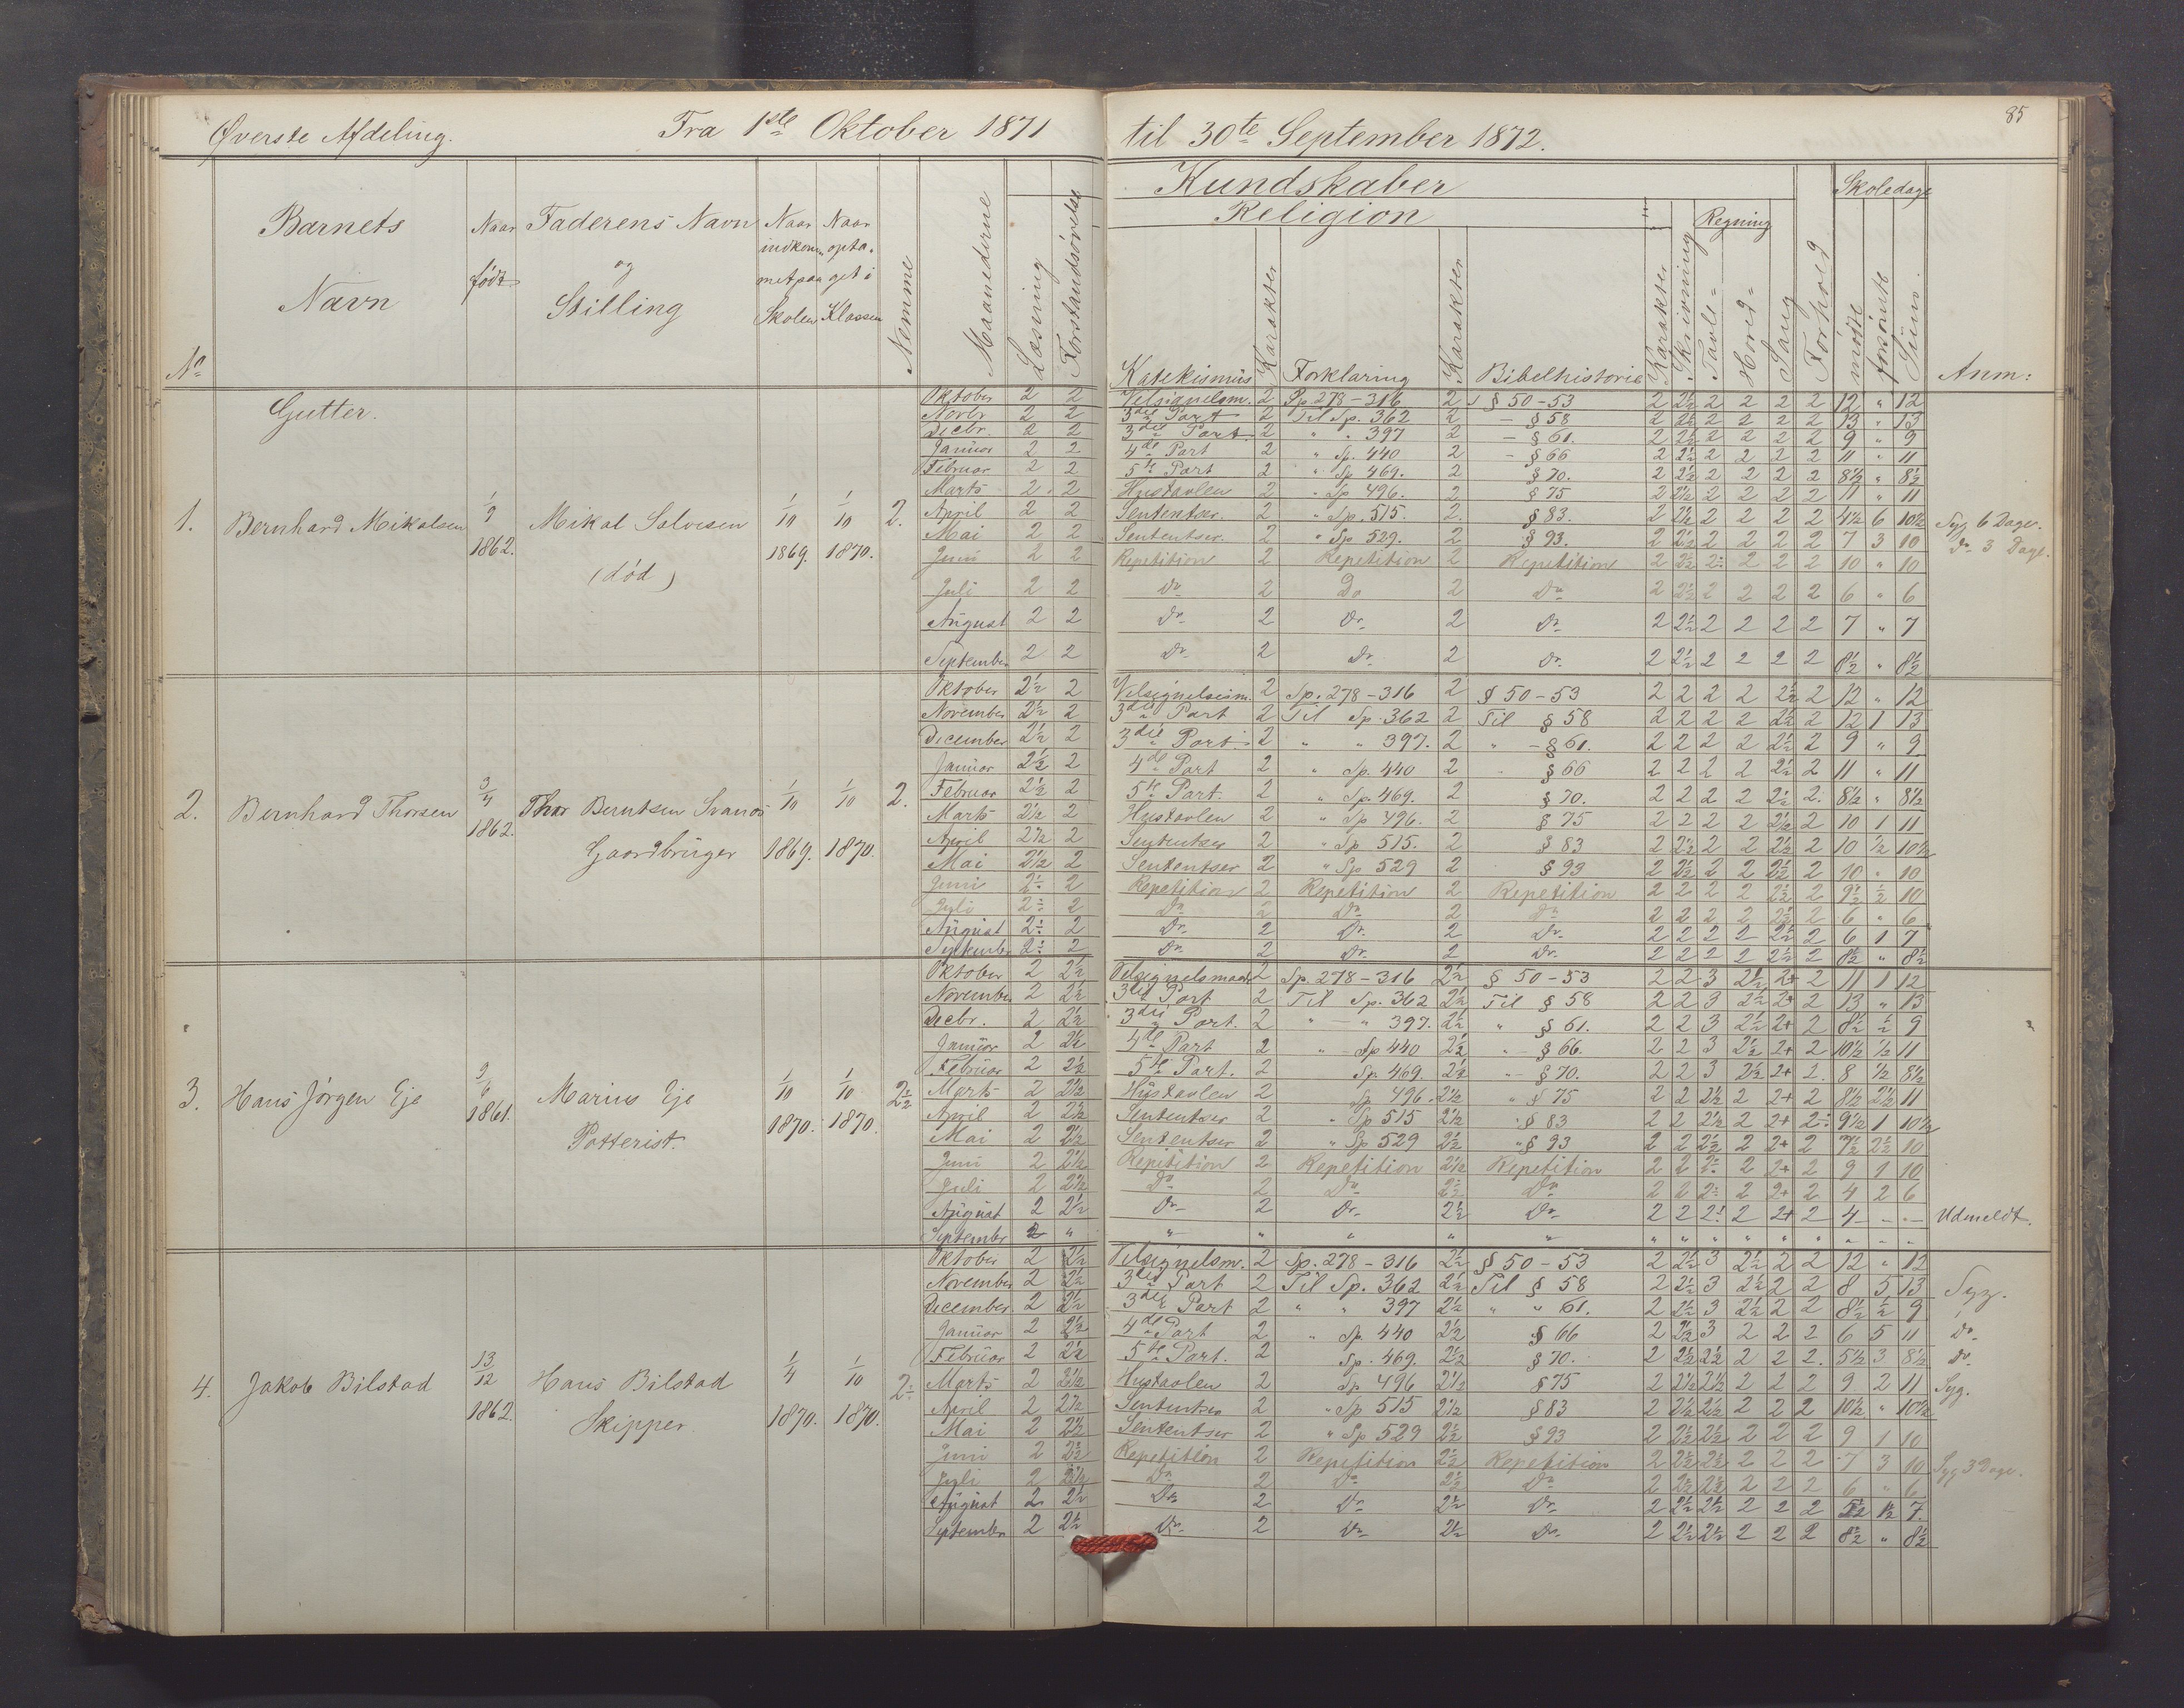 85
Øverste Afdeling. Fra 1ste Oktober 1871 til 30te September 1872.
No
Barnets Navn
Naar født
Faderens Navn og Stilling
Naar indkommet paa Skolen
Naar optaget i Klassen
Nemme
Maanederne
Læsning
Forstandsøvelse
Kundskaber
Religion
Katekismus
Karakter
Forklaring
Karakter
Bibelhistorie
Karakter
Skrivning
Regning
Tavle-
Hoved-
Sang
Forhold
Skoledage
mødte
forsømte
Sum
Anm:
Gutter.
1. Bernhard Mikalsen 1/9 1862. Mikal Salvesen (død) 1/10 1869. 1/10 1870. 2.
Oktober 2 2 Velsignelsm. 2 Sp 278-316 2 § 50-53 2 2½ 2 2 2 2 12 " 12
Novbr 2 2 3die Part 2 Til Sp. 362 2 - § 58 2 2½ 2 2 2 2 13 " 13
Decbr. 2 2 3die Part 2 " " 397 2 - § 61. 2 2½ 2 2 2 2 9 " 9
Januar 2 2 4de Part 2 " Sp. 440 2 - § 66 2 2½ 2 2 2 2 11 " 11
Februar 2 2 5te Part 2 " Sp 469. 2 § 70. 2 2½ 2 2 2 2 8½ " 8½
Marts 2 2 Hustavlen 2 " Sp 496. 2 § 75 2 2½ 2 2 2 2 11 " 11
April 2 2 Sententser. 2 " Sp. 515. 2 § 83. 2 2½ 2 2 2 2 4½ 6 10½ Syg 6 Dage.
Mai 2 2 Sententser. 2 " Sp 529. 2 § 93. 2 2½ 2 2 2 2 7 3 10 Do 3 Dage.
Juni 2 2 Repetition 2 Repetition 2 Repetition 2 2½ 2: 2 2 2 10 " 10
Juli 2 2 Do 2 Do 2 Do 2 2½ 2 2 2 2 6 " 6
August 2 2 Do 2 Do. 2 Do 2 2½ 2 2 2 2 7 " 7
September 2 2 Do. 2 Do. 2 Do. 2 2½ 2 2 2 2 8½ " 8½
2. Bernhard Thorsen 3/4 1862. Thor Berntsen Svanøs Gaardbruger 1/10 1869. 1/10 1870. 2.
Oktober 2½ 2 Velsignelsesm. 2 Sp. 278-316 2 § 50-53 2 2 2 2 2½ 2 12 " 12
November 2½ 2 3die Part 2 Til Sp. 362 2 Til § 58 2 2 2 2 2½ 2 12 1 13
December 2½ 2 3die Part. 2 " " 397. 2 " - § 61. 2 2 2 2 2½ 2 9 " 9
Januar 2½ 2 4de Part 2 " Sp. 440 2 § 66 2 2 2 2 2½ 2 11 " 11
Februar 2½ 2 5te Part. 2 " Sp. 469. 2 § 70. 2 2 2 2 2½ 2 8½ " 8½
Marts 2½ 2 Hustavlen 2 " Sp 496. 2 § 75 2 2 2 2 2½ 2 10 1 11
April 2½ 2 Sententser 2 " Sp 515. 2 § 83 2 2½ 2 2 2½ 2 10 ½ 10½
Mai 2½ 2 Sententser 2 " Sp 529 2 § 93 2 2½ 2 2 2½ 2 10 " 10
Juni 2÷ 2 Repetition 2 Repetition 2 Repetition 2 2 2 2 2½ 2 9½ ½ 10
Juli 2÷ 2 Do 2 Do 2 Do 2 2 2 2 2½ 2 6 " 6
August 2÷ 2 Do. 2 Do. 2 Do. 2 2 2 2 2½ 2 6 1 7
September 2÷ 2 Do. 2 Do. 2 Do. 2 2 2 2 2½ 2 8½ " 8½
3. Hans Jørgen Eje 1861. Marius Eje Potterist. 1/10 1870. 1/10 1870. 2½
Oktober 2 2½ Velsignelsmaade 2 Sp. 278-316 2½ § 50-53 2 2 3 2½ 2+ 2 11 1 12
November 2 2½ 3die Part 2 Til Sp. 362 2½ Til § 58 2 2 3 2½ 2+ 2 13 " 13
Decbr. 2 2½ 3die Part. 2 " - " 397. 2½ " § 61. 2 2 3 2½ 2+ 2 8½ ½ 9
Januar 2 2½ 4de Part 2 " - Sp 440 2½ " - § 66. 2 2 3 2½ 2+ 2 10½ ½ 11
Februar 2 2½ 5te Part. 2 Sp. 469 2½ " - § 70. 2 2 3 2½ 2+ 2. 8 ½ 8½
Marts 2 2½ Hustavlen 2 Sp 496. 2½ " § 75 2 2 2½ 2 2+ 2 8½ 2½ 11
April 2 2½ Sententser 2 " Sp 515 2½ " § 83 2 2 2½ 2 2+ 2÷ 9½ 1 10½
Mai 2 2½ Sententser 2 " Sp 529 2½ " § 93 2 2 2½ 2 2+ 2 7½ 2½ 10
Juni 2 2½ Repitition 2 Repetition 2½ Repetition 2 2 2÷ 2 2+ 2 9 1 10
Juli 2 2½ Do 2 Do 2½ Do 2 2 2÷ 2 2+ 2 4 2 6
August 2 2½ Do 2 Do. 2½ Do 2 2 2÷ 2 2+ 2 4 - - Udmeldt.
Septembr 2 " " " " " " " " " " " " " - "
4. Jakob Bilstad 13/12 1862. Hans Bilstad Skipper. 1/4 1870. 1/10 1870. 2÷
Oktober 2 2½ Velsignelsm. 2 Sp. 278-316 2½ § 50-53 2 2½ 3 2½ 2 2 12 " 12
November 2 2½ 3die Part 2 Til Sp. 362 2½ Til § 58 2 2½ 3 2½ 2 2 8 5 13 Syg.
December 2 2½ 3die Part 2 " " 397 2½ " " 61. 2 2½ 3 2½ 2 2 8½ ½ 9
Januar 2 2½ 4de Part 2 " Sp. 440 2½ § 66 2 2½ 3 2 2 2 6 5 11 Do
Februar 2 2½ 5te Part. 2 Sp. 469. 2½ § 70. 2 2½ 2½ 2 2 2. 5½ 3 8½ Do
Marts 2 2½ Hustavlen 2 Sp 496 2½ § 75 2 2½ 2½ 2 2 2 9 2 11 Syg.
April 2 2½ Sententser 2 " Sp 515 2½ § 83 2 2½ 2½ 2 2 2 10½ " 10½
Mai 2 2½ Sententser 2 " Sp 529 2½ § 93 2 2½ 2½ 2 2 2 9 1 10
Juni 2 2½ Repetition 2 Repetition 2½ Repetition 2 2½ 2½ 2 2 2 7 3 10 Syg 3 Dage.
Juli 2 2½ Do 2 Do 2½ Do 2 2½ 2½ 2 2 2 6 " 6
August 2 2½ Do 2 Do. 2½ Do. 2 2½ 2½ 2 2 2 5½ 1½ 7.
September 2 2½ Do. 2 Do. 2½ Do. 2 2½ 2½ 2 2 2 8½ " 8½